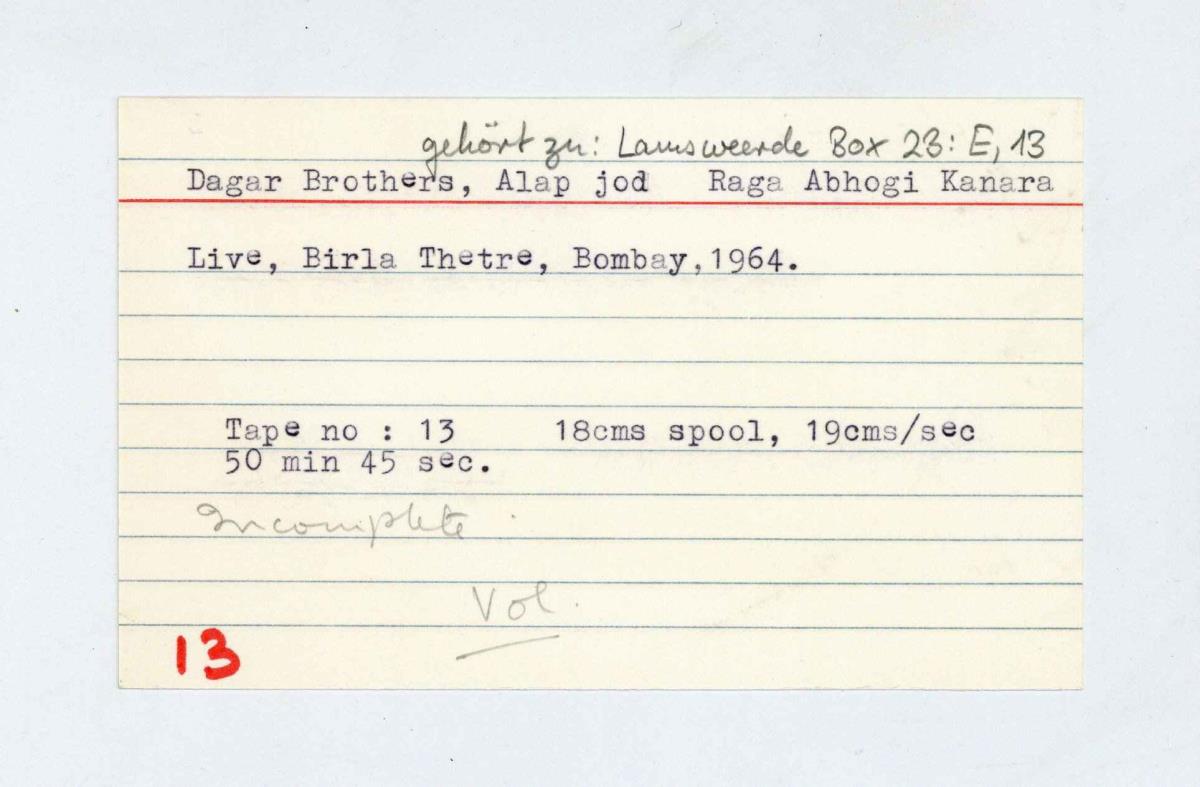 gehört zu: Lamsweerde Box 23: E, 13
Dagar Brothers, Alap jod Raga Abhogi Kanara
Live, Birla Thetre, Bombay,1964.
Tape no : 13 18cms spool, 19cms/sec
50 min 45 sec.
Incomplete
Vol.
13